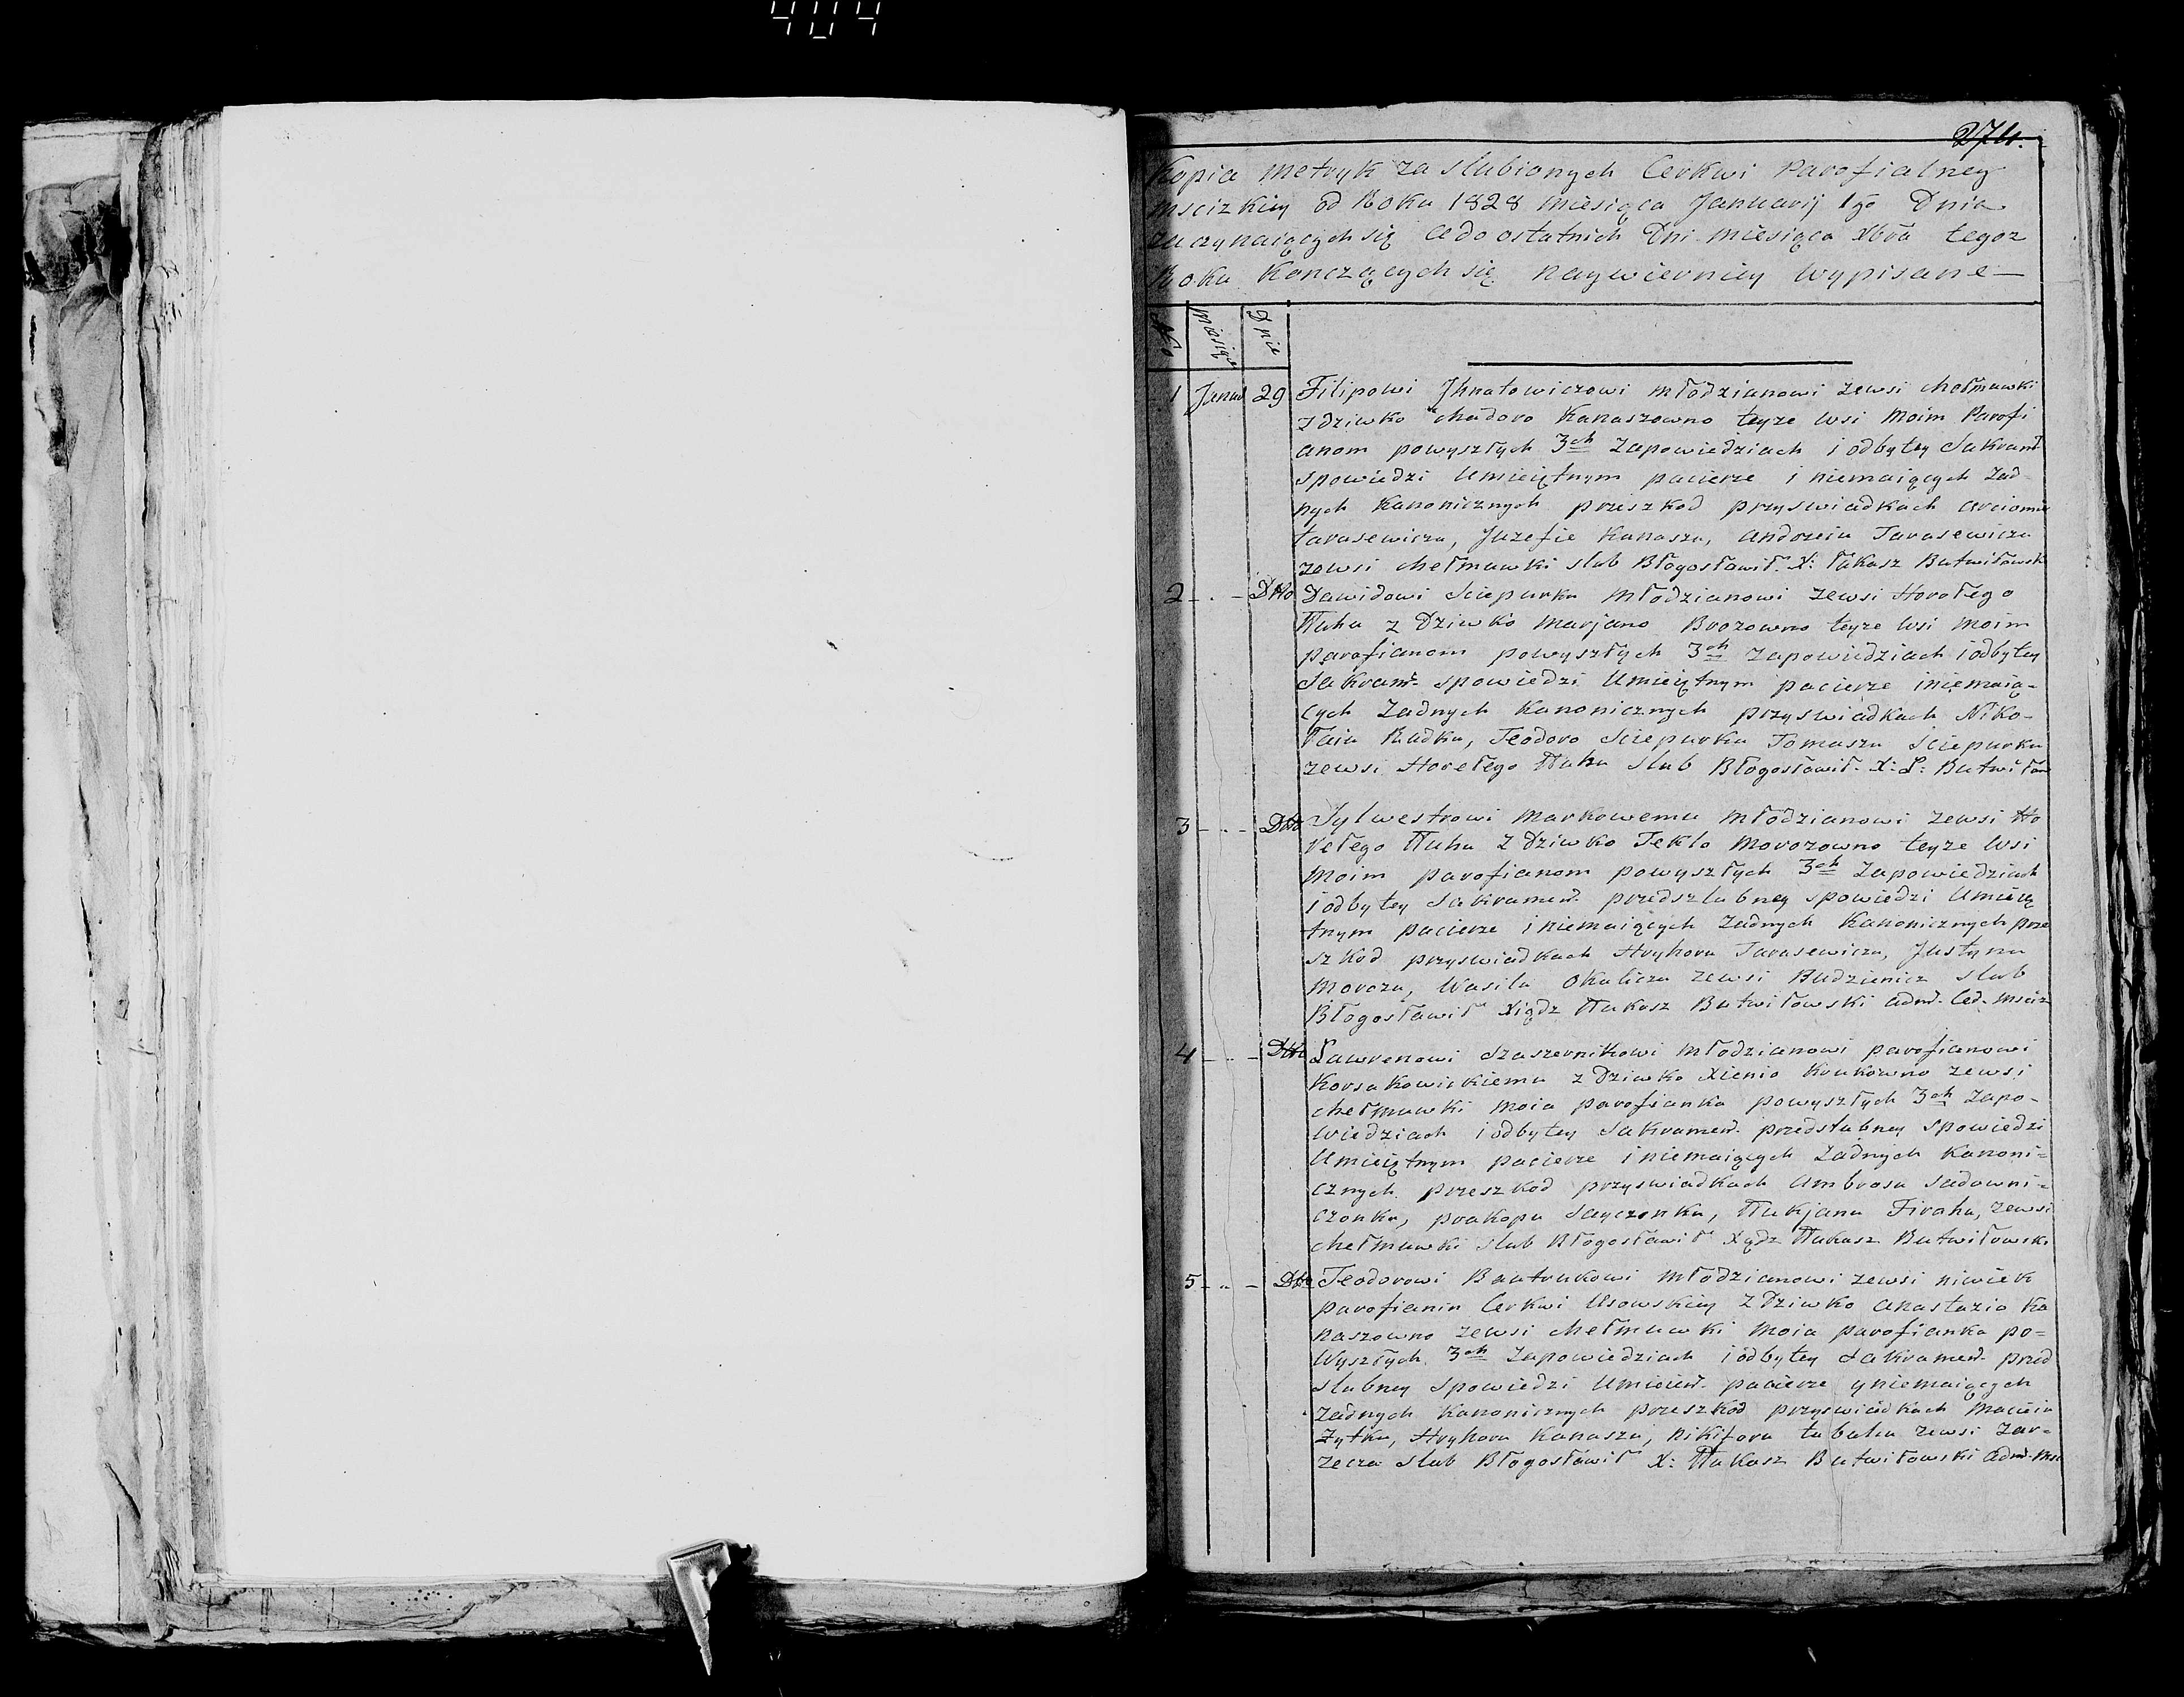 404
274.
Kopia metryk zaslubionych Cerkwi Parofialney
Mscizkiey od Roku 1828 miesiąca Januarij 1go Dnia
zaczynaiących się a do ostatnich Dni miesiąca Xbra tegoz
Roku Konczących się naywierniey wypisane —
No Miesiąc Dnie
1 Janua 29 Filipowi Jhnatowiczowi młodzianowi zewsi Chełmawki
z dziwko Chadoro Kanaszowno teyze wsi moim Parofi
anom powyszłych 3ch zapowiedziach i odbytey Sakramt
spowiedzi Umieiętnym pacierze i niemaiących zad
nych Kanonicznych przeszkod przyswiadkach Arciomie
tarasewicza, Juzefie Kanasza, Andrzeia Tarasewicza
zewsi Chełmawki slub Błogosławił X: łukasz Butwiłowski
2 - . - Dtto Dawidowi Sciepurku młodzianowi zewsi Horołego
Łuha z Dziwko Marjano Brozowno teyze wsi moim
parofianom powyszłych 3ch zapowiedziach i odbytey
Sakramt spowiedzi Umieiętnym pacierze i niemaią-
cych zadnych Kanonicznych przyswiadkach Niko-
łaia Radka, Teodoro Sciepurku Tomaszu Sciepurku
zewsi Horełego Łuha slub Błogosławił X: Ł: Butwiłow
3 - .. - Dtto Sylwestrowi Markowemu młodzianowi zewsi Ho
rełego Łuha z Dziwko Teklo Morozowno teyze wsi
moim parofianom powyszłych 3ch zapowiedziach
i odbytey Sakrament. przedszlubney spowiedzi Umieię
tnym pacierze i niemaiących zadnych Kanonicznych prze
szkod przyswiadkach Hryhora Tarasewicza, Justyna
Moroza, Wasila Okulicza zewsi Budzienicz slub
Błogosławił Xiądz Łukasz Butwiłowski adm. Ced. Mscis
4 - .. - Dtto Ławrenowi Szaszernikowi młodzianowi parofianowi
Korsakowickiemu z Dziwko Xienio Krukowno zewsi
Chełmawki moia parofianka powyszłych 3ch zapo-
wiedziach i odbytey Sakrament. przedslubney spowiedzi
Umieiętnym pacierze i niemaiących zadnych Kanoni=
cznych przeszkod przyswiadkach Ambrosa Sadowni=
czonka, prakopa Sayczonka, Łukjana Firaha, zewsi
Chełmawki slub Błogosławił Xądz Łukasz Butwiłowski
5 - .. - Dtto Teodorowi Bautrukowi młodzianowi zewsi niwiek
parofianin Cerkwi Usowskiey z Dziwko Anastazio Ka
naszowno zewsi Chełmawki moia parofianka po=
wyszłych 3ch zapowiedziach i odbytey Sakrament. przed
slubney spowiedzi Umieient. pacierze y niemaiących
zadnych Kanonicznych przeszkod przyswiadkach Macieia
Zytka, Hryhora Kanasza, Nikifora tabala zewsi Zar=
zecza slub Błogosławił X: Łukasz Butwiłowski adm. Msc